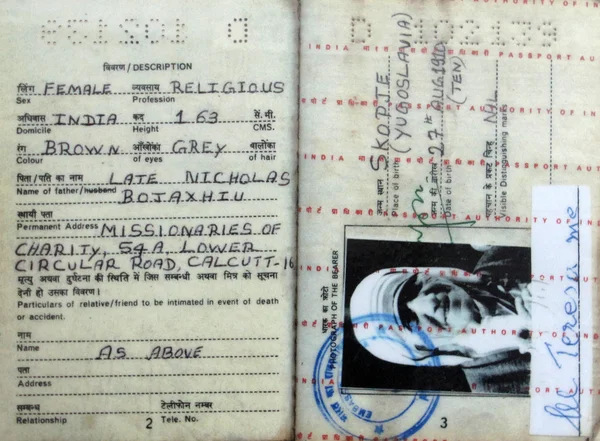 विवरण / DESCRIPTION
लिंग FEMALE व्यवसाय RELIGIOUS
Sex Profession
अधिवास INDIA कद 1 63 सें. मी.
Domicile Height CMS.
रंग BROWN आँखोंका GREY बालोंका
Colour of eyes of hair
पिता/पति का नाम LATE NICHOLAS
Name of father/husband BOJAXHIU
स्थायी पता
Permanent Address MISSIONARIES OF
CHARITY, 54A, LOWER
CIRCULAR ROAD, CALCUTT-16
मृत्यु अथवा दुर्घटना की स्थिति में जिस सम्बन्धी अथवा मित्र को सूचना
देनी हो उसका विवरण।
Particulars of relative/friend to be intimated in event of death
or accident.
नाम
Name AS ABOVE
पता
Address
सम्बन्ध टेलीफोन नम्बर
Relationship Tele. No.
2
जन्म स्थान SKOPJE
Place of birth (YUGOSLAVIA)
जन्म की तारीख 27th AUG 1910
Date of birth (TEN)
पहचान के प्रकट चिन्ह NIL
Visible Distinguishing marks
धारक का फोटो
PHOTOGRAPH OF THE BEARER
M. Teresa mc
3